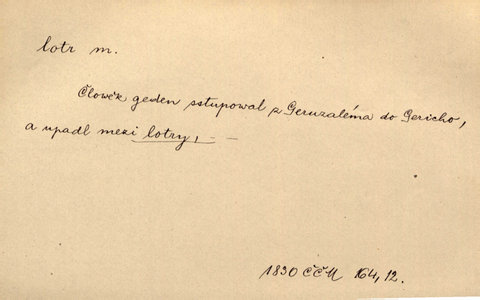 lotr m.
Člowěk geden sstupowal z Geruzaléma do Gericho,
a upadl mezi lotry, – –
1830 ČČM 164, 12.